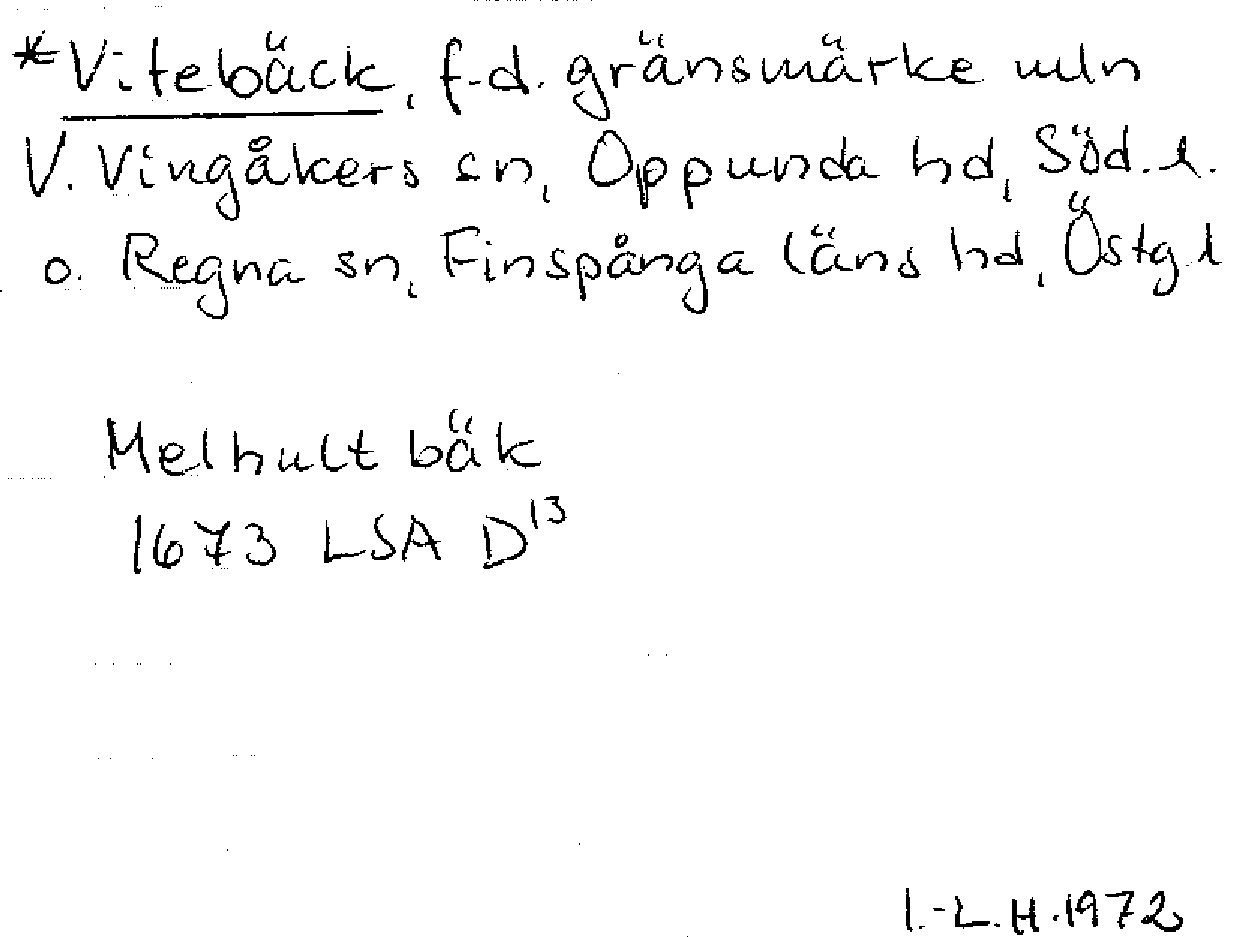 *Vitebäck, f.d. gränsmärke mln
V. Vingåkers sn, Oppunda hd, Söd.l.
o. Regna sn, Finspånga läns hd, Östg l
Melhult bäk
1673 LSA D¹³
I.-L.H. 1972